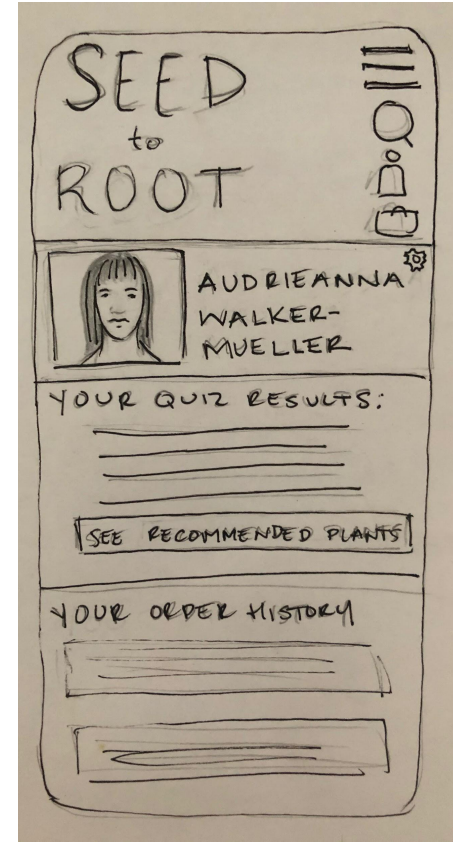 SEED
to
ROOT
AUDRIEANNA
WALKER-
MUELLER
YOUR QUIZ RESULTS:
SEE RECOMMENDED PLANTS
YOUR ORDER HISTORY